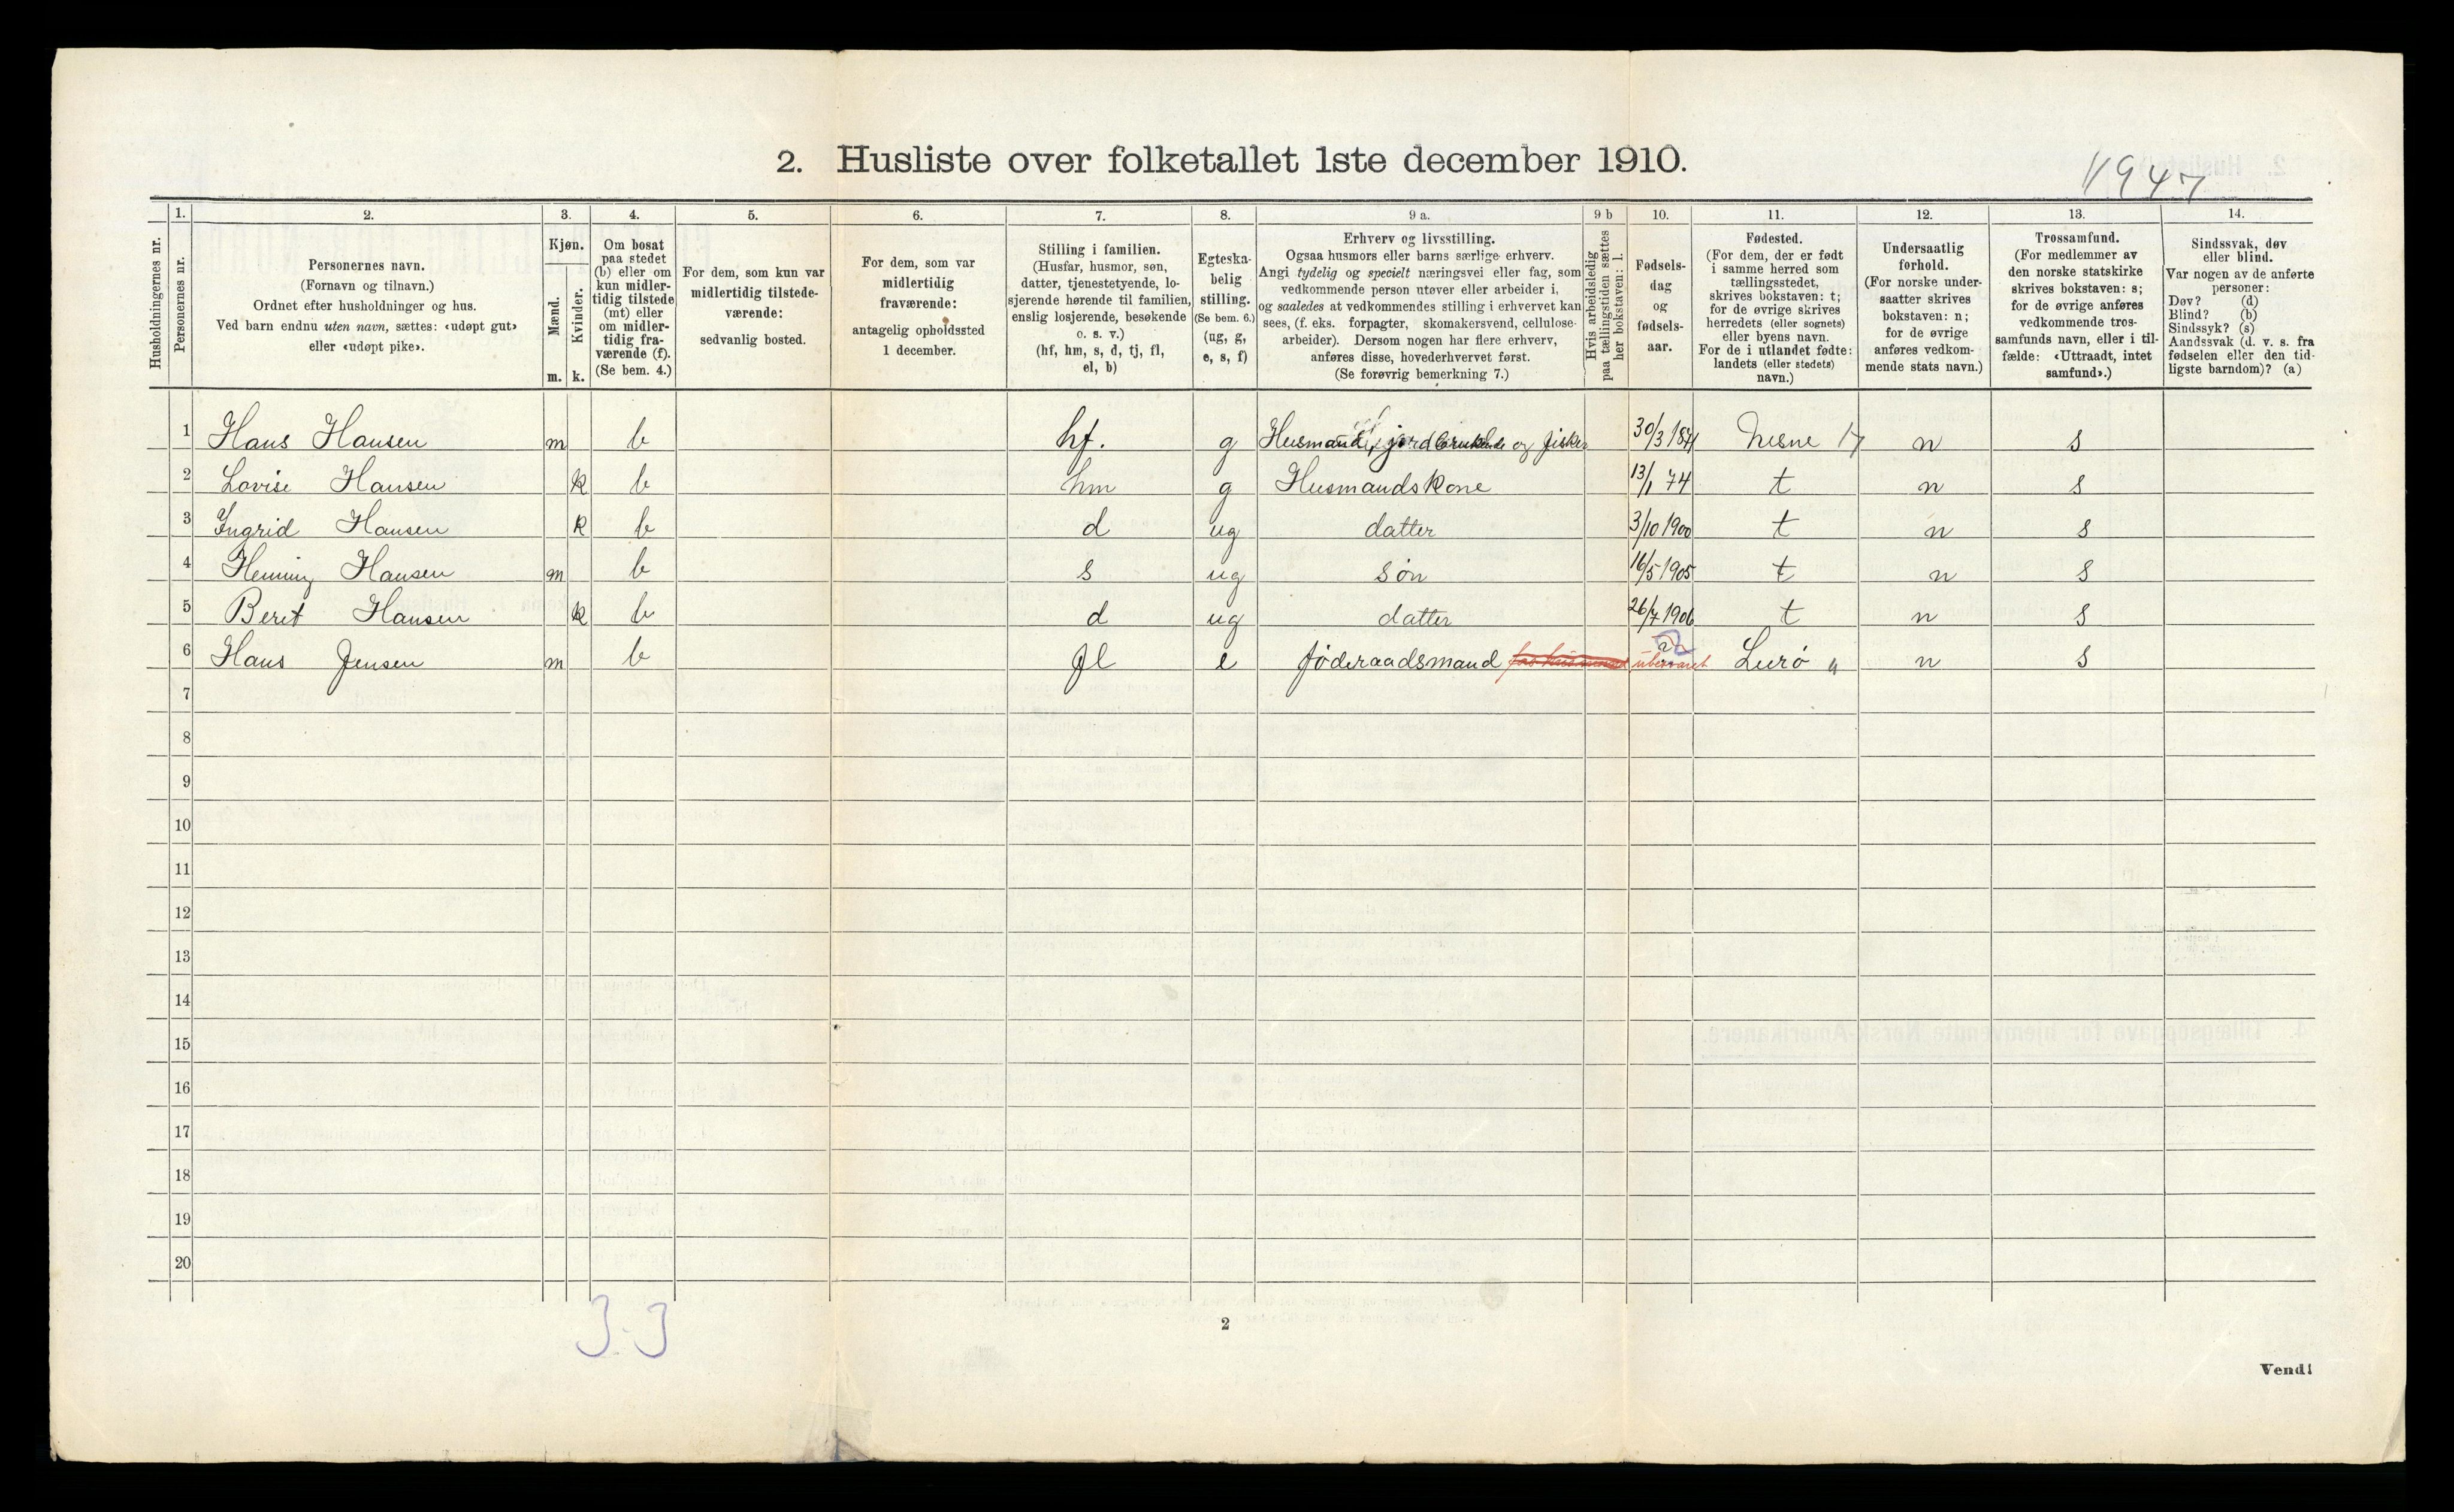 2. Husliste over folketallet 1ste december 1910.
1947
Husholdningernes nr.
1.
Personernes nr.
2.
Personernes navn.
(Fornavn og tilnavn.)
Ordnet efter husholdninger og hus.
Ved barn endnu uten navn, sættes: «udøpt gut»
eller «udøpt pike».
3.
Kjøn.
Mænd.
Kvinder.
m. k.
4.
Om bosat
paa stedet
(b) eller om
kun midler-
tidig tilstede
(mt) eller
om midler-
tidig fra-
værende (f).
(Se bem. 4.)
5.
For dem, som kun var
midlertidig tilstede-
værende:
sedvanlig bosted.
6.
For dem, som var
midlertidig
fraværende:
antagelig opholdssted
1 december.
7.
Stilling i familien.
(Husfar, husmor, søn,
datter, tjenestetyende, lo-
sjerende hørende til familien,
enslig losjerende, besøkende
o. s. v.)
(hf, hm, s, d, tj, fl,
el, b)
8.
Egteska-
belig
stilling.
(Se bem. 6.)
(ug, g,
e, s, f)
9 a.
Erhverv og livsstilling.
Ogsaa husmors eller barns særlige erhverv.
Angi tydelig og specielt næringsvei eller fag, som
vedkommende person utøver eller arbeider i,
og saaledes at vedkommendes stilling i erhvervet kan
sees, (f. eks. forpagter, skomakersvend, cellulose-
arbeider). Dersom nogen har flere erhverv,
anføres disse, hovederhvervet først.
(Se forøvrig bemerkning 7.)
9 b
Hvis arbeidsledig
paa tællingstiden sættes
her bokstaven: l.
10.
Fødsels-
dag
og
fødsels-
aar.
11.
Fødested.
(For dem, der er født
i samme herred som
tællingsstedet,
skrives bokstaven: t;
for de øvrige skrives
herredets (eller sognets)
eller byens navn.
For de i utlandet fødte:
landets (eller stedets)
navn.)
12.
Undersaatlig
forhold.
(For norske under-
saatter skrives
bokstaven: n;
for de øvrige
anføres vedkom-
mende stats navn.)
13.
Trossamfund.
(For medlemmer av
den norske statskirke
skrives bokstaven: s;
for de øvrige anføres
vedkommende tros-
samfunds navn, eller i til-
fælde: «Uttraadt, intet
samfund».)
14.
Sindssvak, døv
eller blind.
Var nogen av de anførte
personer:
Døv? (d)
Blind? (b)
Sindssyk? (s)
Aandssvak (d. v. s. fra
fødselen eller den tid-
ligste barndom)? (a)
1 Hans Hansen m b hf. g Husmand, jordbrukende og fisker 30/3 1871 Nesne 17 n s
2 Lovise Hansen k b hm g Husmandskone 13/1 74 t n s
3 Ingrid Hansen k b d ug datter 3/10 1900 t n s
4 Henning Hansen m b s ug søn 16/5 1905 t n s
5 Beret Hansen k b d ug datter 26/7 1906 t n s
6 Hans Jensen m b fl e føderaadsmand Lurø " n s
7
8
9
10
11
12
13
14
15
16
17
18
19
20
3-3
2
Vend!